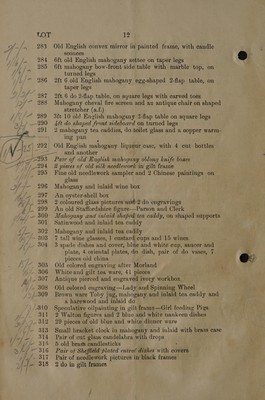 LOT 12
283 Old English convex mirror in painted frame, with candle
sconces
284 6ft old English mahogany settee on taper legs
285 6ft mahogany bow-front side table with marble top, on
turned legs
286 2ft 6 old English mahogany egg-shaped 2-flap table, on
taper legs
287 2ft 6 do 2-flap table, on square legs with carved toes
288 Mahogany cheval fire screen and an antique chair on shaped
stretcher (a.f.)
289 3ft 10 old English mahogany 2-flap table on square legs
290 4ft do shaped front sideboard on turned legs
291 2 mahogany tea caddies, do toilet glass and a copper warm-
ing pan
292 Old English mahogany liqueur case, with 4 cut bottles
and another
293 Pair of old English mahogany oblong knife boxes
294 2 pieces of old silk needlework in gilt frames
295 Fine old needlework sampler and 2 Chinese paintings on
glass
296 Mahogany and inlaid wine box
297 An oyster-shell box
298 2 coloured glass pictures and 2 do engravings
299 An old Staffordshire figure—Parson and Clerk
300 Mahogany and inlaid shaped tea caddy, on shaped supports
301 Satinwood and inlaid tea caddy
302 Mahogany and inlaid tea caddy
303 7 tall wine glasses, 1 custard cups and 15 wines
304 3 spode dishes and cover, blue and white cup, saucer and
plate, 4 oriental plates, do dish, pair of do vases, 7
pieces old china
305 Old colored engraving after Morland
306 White and gilt tea ware, 41 pieces
307 Antique pierced and engraved ivory workbox
308 Old colored engraving—Lady and Spinning Wheel
309 Brown ware Toby jug, mahogany and inlaid tea caddy and
a barwood and inlaid do
310 Speculative oilpainting in gilt frame—Girl feeding Pigs
311 2 Walton figures and 2 blue and white nankeen dishes
312 29 pieces of old blue and white dinner ware
313 Small bracket clock in mahogany and inlaid with brass case
314 Pair of cut glass candelabra with drops
315 5 old brass candlesticks
316 Pair of Sheffield plated entree dishes with covers
317 Pair of needlework pictures in black frames
318 2 do in gilt frames